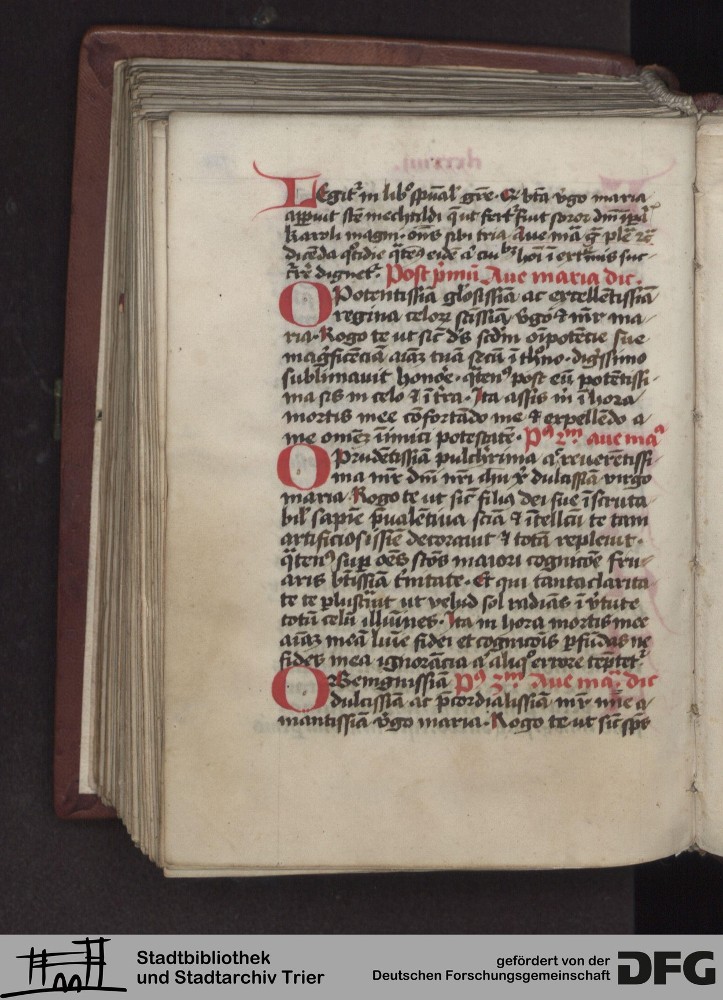 Legit͛ in lib͛o sp̄ual' gr̄e · Q͛ bt̄a v͛go maria
appuit sc̄e mechtildi
karoli magni · oīns sibi tria Aue mā gr̄ plē
dicēda q°tidie
dignet͛ · Post p͛mū Aue maria dic ·
O Potentissīa gl'osissīa ac excellētissīa
regina celoꝝ sc̄issīa v͛go & mr̄ ma
ria · Rogo te ut sic̄ d's scd̄m oīpotēcie sue
mag͛ficēciā aīaꝫ tuā secū ī th͛no · dig͛ssimo
sublimauit honoē · q̄ten⁹ post eū potētissi
ma sis in celo & ī t͛ra · Ita assis m͛ ī hora
mortis mee cōfortādo me & expellēdo a
me omēꝫ īimici potestatē · P⁹ 2m̄ aue ma͛
O Prudētissīa pulch͛rima ac reuerētissi
ma mr̄ dn̄i nr̄i ih̄u xp̄ dulcissīa virgo
maria · Rogo te ut sic̄ filiꝰ dei sue īscruta
bil' sapīe p̄ualentiua sciā & ītellc̄ū te tam
artificiosissīe decorauit & totā repleuit ·
q̄ten⁹ suꝑ oēs sc̄os maiori cognicōe fru
aris bt̄issīa t͛nitate · Et qui tanta clarita
te te ꝑlustͣuit ut velud sol radiās ī v͛tute
totū celū illuīnes · Ita in hora mortis mee
aīaꝫ meā luīe fidei et cognicōis ꝑfūdas ne
fides mea ignorācia aͧ aliqͦ errore tēptet͛ ·
O Benignissīa P⁹ 3m̄ Aue ma͛ dic
dulcissīa ac p̄cordialissīa mr̄ mīe a
mantissīa v͛go maria · Rogo te ut sic̄ sp̄s
Stadtbibliothek
und Stadtarchiv Trier
gefördert von der
Deutschen Forschungsgemeinschaft
DFG